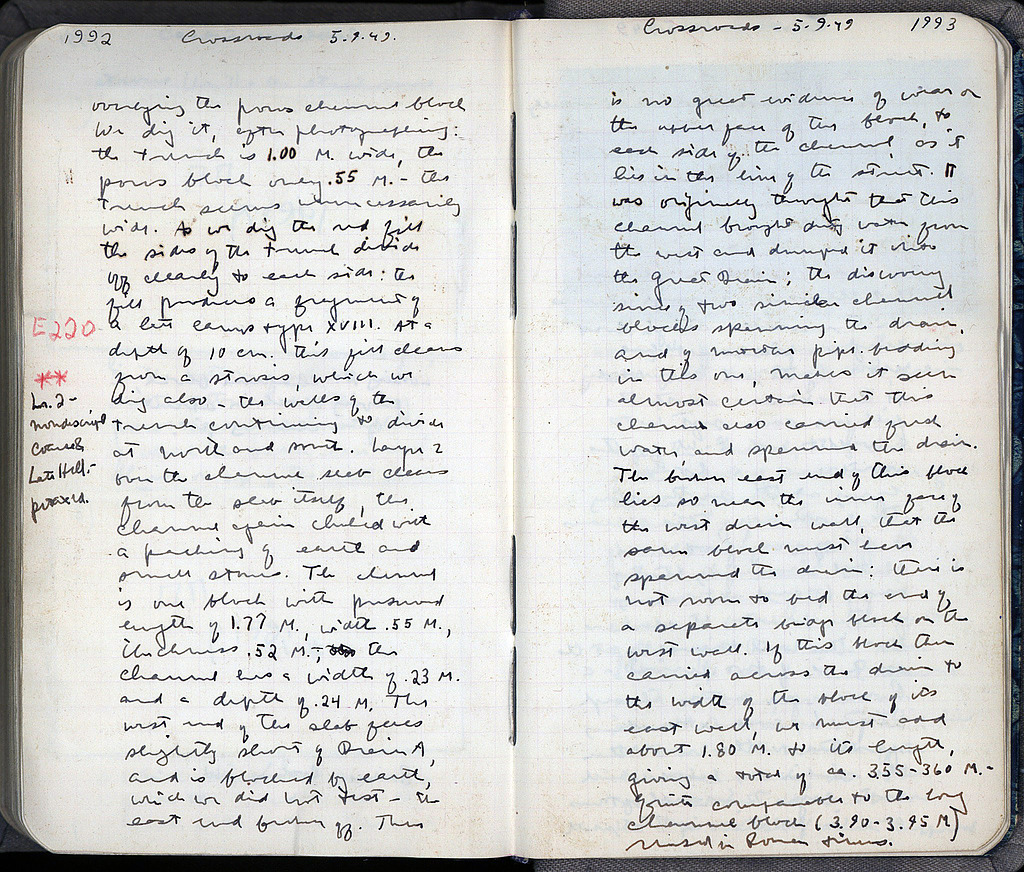 1992 Crossroads 5.9.49.
overlying the poros channel block
We dig it, after photographing:
the trench is 1.00 M. wide, the
poros block only .55 M. - the
trench seems unnecessarily
wide. As we dig the red fill
the sides of the trench divide
off clearly to each side: the
fill produces a fragment of
a late lamp type XVIII. At a
depth of 10 cm. this fill cleans
from a strosis, which we
dig also - the walls of the
trench continuing to divide
at north and south. Layer 2
over the channel slab cleans
from the slab itself, the
channel again choked with
a packing of earth and
small stones. The channel
is one block with preserved
length of 1.77 M., width .55 M.,
thickness .52 M.; the
channel has a width of .23 M.
and a depth of .24 M. The
west end of the slab goes
slightly short of Drain A,
and is blocked by earth,
which we did not test - the
east end broken off. There
E220
**
Lr. 2 -
nondescript
coarse
Late Hell. -
Crossroads - 5.9.49 1993
is no great evidence of wear on
the upper face of the block, to
each side of the channel, as it
lies in the line of the street. It
was originally thought that this
channel brought dirty water from
the west and dumped it into
the Great Drain; the discovery
since of two similar channel
blocks spanning the drain,
and of mortar pipe bedding
in this one, makes it seem
almost certain that this
channel also carried fresh
water, and spanned the drain.
The broken east end of this block
lies so near the inner face of
the west drain wall, that the
same block must have
spanned the drain: there is
not room to bed the end of
a separate bridge block on the
west wall. If this block then
carried across the drain to
the width of the block of its
east wall, we must add
about 1.80 M. to its length,
giving a total of ca. 3.55-3.60 M. -
quite comparable to the long
channel block (3.90-3.95 M)
reused in Roman times.